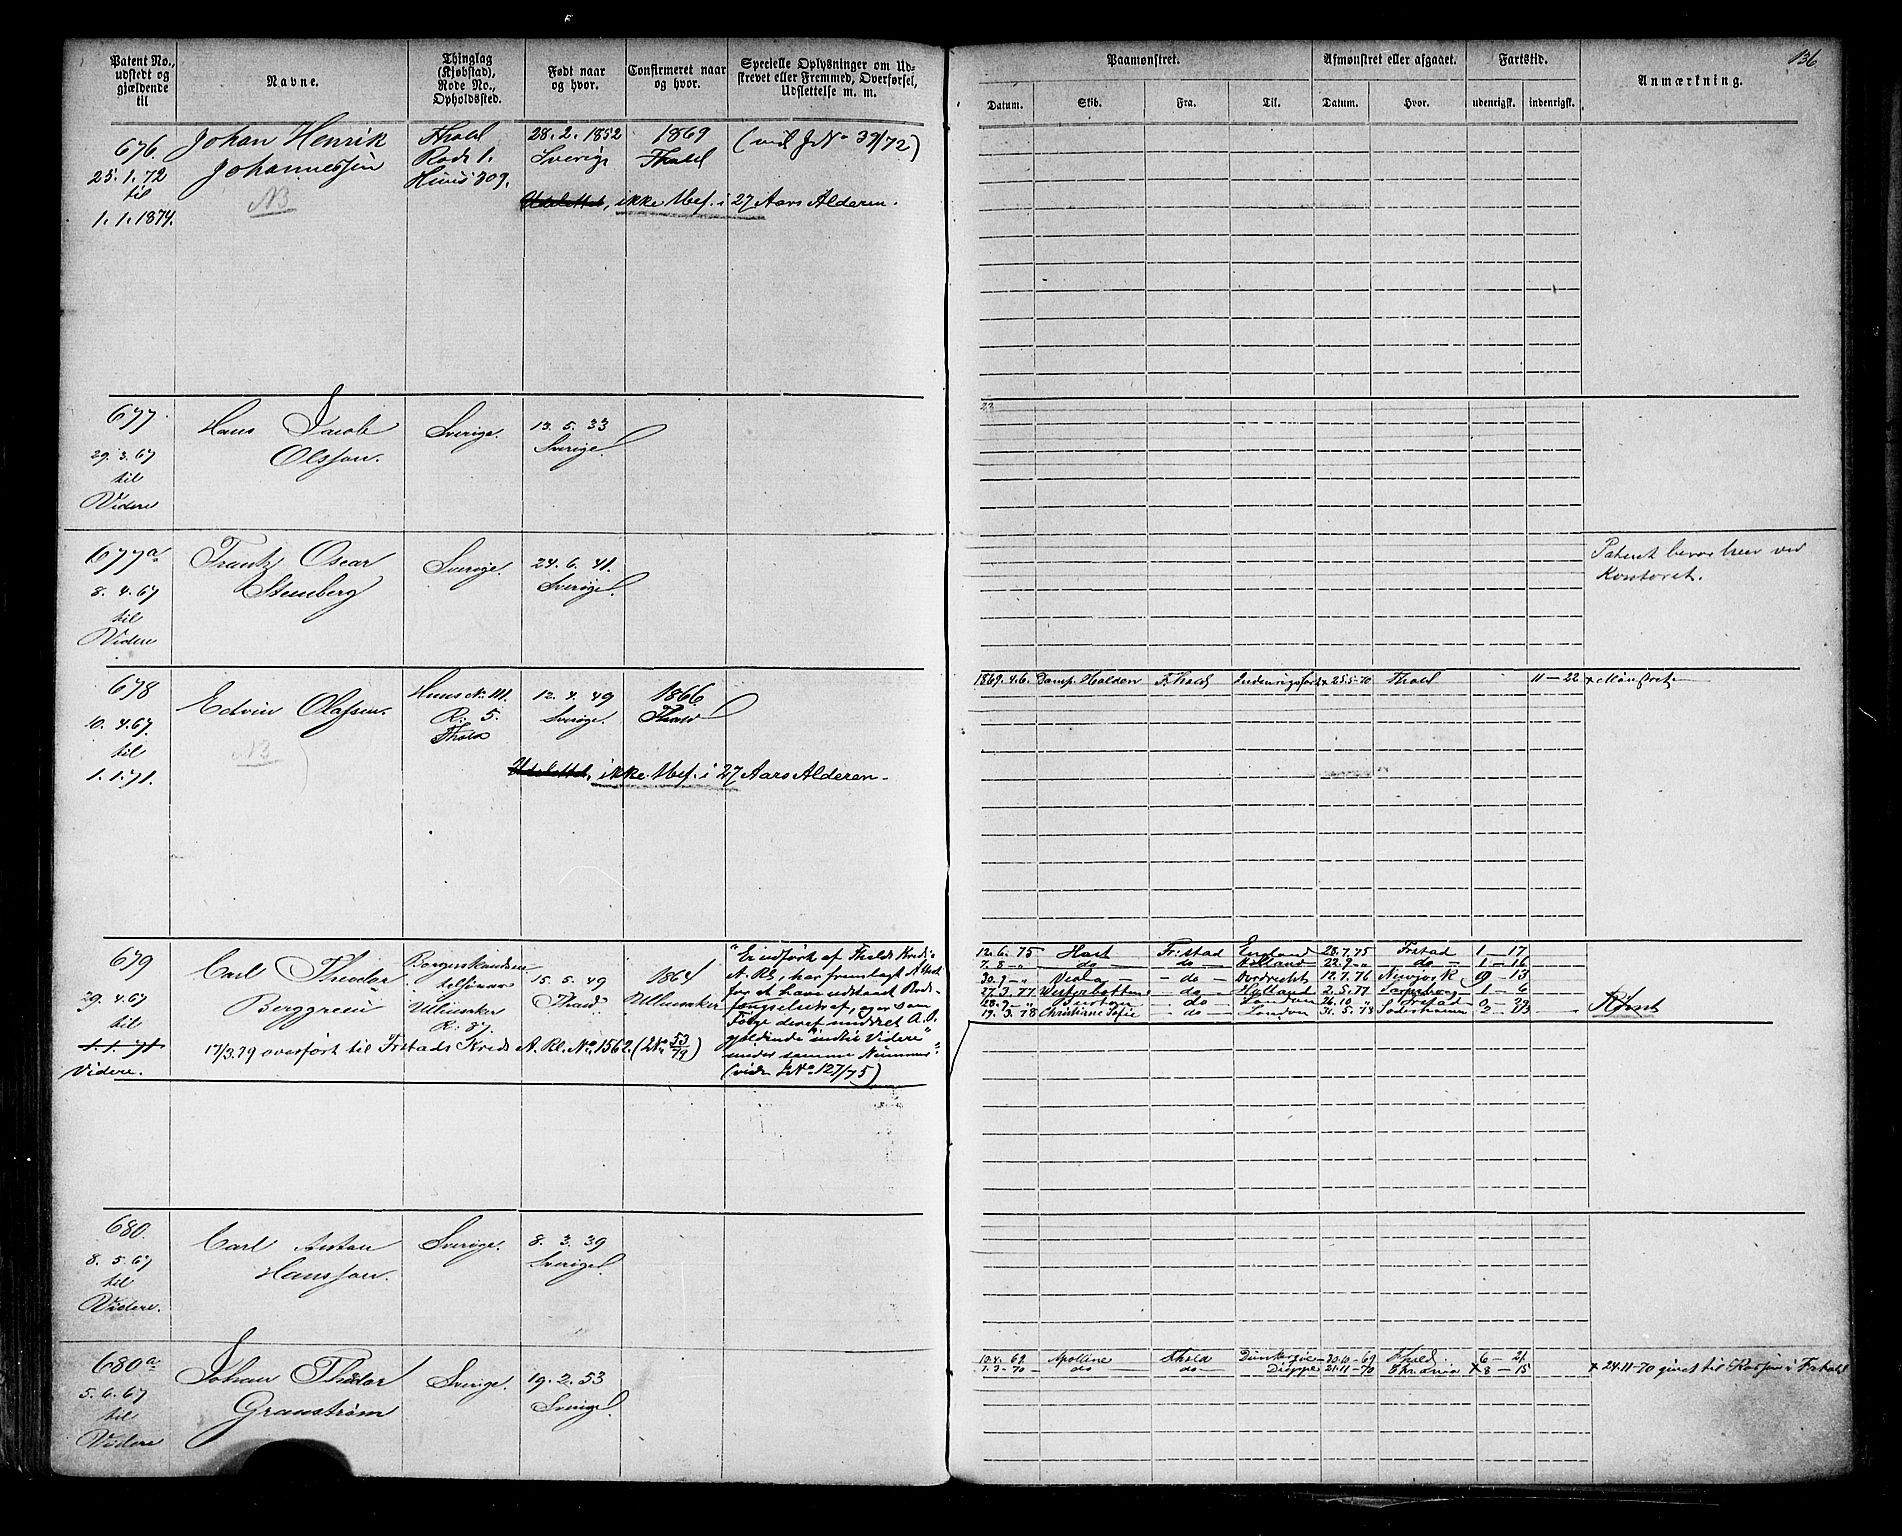 136
Patent No., udstedt og gjældende til
Navne.
Thinglag (Kjøbstad), Rode No., Opholdssted.
Født naar og hvor.
Confirmeret naar og hvor.
Specielle Oplysninger om Udskrevet eller Fremmed, Overførsel, Udslettelse m. m.
Paamønstret.
Afmønstret eller afgaaet.
Fartstid.
Anmærkning.
Datum. Skib. Fra. Til. Datum. Hvor. udenrigsk. indenrigsk.
676. Johan Henrik Fhald 28. 2. 1852 1869 (vid JNo 39/72)
25. 1. 72 Johannessen Rode 1. Sverige Fhald
til NB Huus 309.
1. 1. 1874. Udslettet, ikke Mef. i 27 Aars Alderen.
677. Hans Jacob Sverige. 13. 5. 33
29. 3. 67 Olsson. Sverige.
til
Videre
677a Frantz Oscar Sverige. 24. 6. 41. Patent beror her ved
8. 4. 67 Stenberg Sverige Kontoret.
til
Videre
678 Edvin Olafsen. Huus N. 111. 12. 4. 49 1866 1869. 4.6. Damp. Halden Fr.hald Indenrigsfart x 25.5.70 Fhald 11 – 22 x Mønstret
10. 4. 67 R. 5. Sverige. Fhald
til NB Fhald
1. 1. 71. Udslettet, ikke Mef. i 27 Aars Alderen.
679 Carl Theodor 15. 5. 49 1864
29. 4. 67 Berggreen Ullensaker Fhald Ullensaker
til R. 87.
1. 1. 71 17/3.79 overført til Frstads Krids A. Rl. No. 1562. (2No 53/79)
Videre.
"Er indført af Fhalds Krds
A. Rl., har fremlagt Attest
for at have udstaaet
Fængselsstraf, er som
Følge deraf meddelt A. P.
gjældende indtil Videre
under samme Nummer"
(vide JNo 127/75)
12. 6. 75 Fr.stad England 28.7.75 Frstad 1 – 17
7. 8 – " do – do – Holland 22.9 – " do – 1 – 16
30. 9 – " – do – Dordrecht 12.7.76 Newjork 9 13
27. 3. 77 – do – Holland 2.5.77 1 – 6
28. 9 – " do London 26.10 – " Frstad 0 – 29
19. 3. 78 Christiane Sofie – do – London 31.5.78 2 – 13
680. Carl Anton Sverige. 8. 3. 39
8. 5. 67 Hansson. Sverige.
til
Videre.
680a Johan Theodor Sverige. 19. 2. 53
5. 6. 67 Granstrøm Sverige
til
Videre
10.4. 69 Apolline Fhald 30.10 – 69 Fhald 6 – 21
1.3 – 70 do do – Dieppe 21.11 – 70 x 8 – 15 x 24.11-70 givet til i Frhald